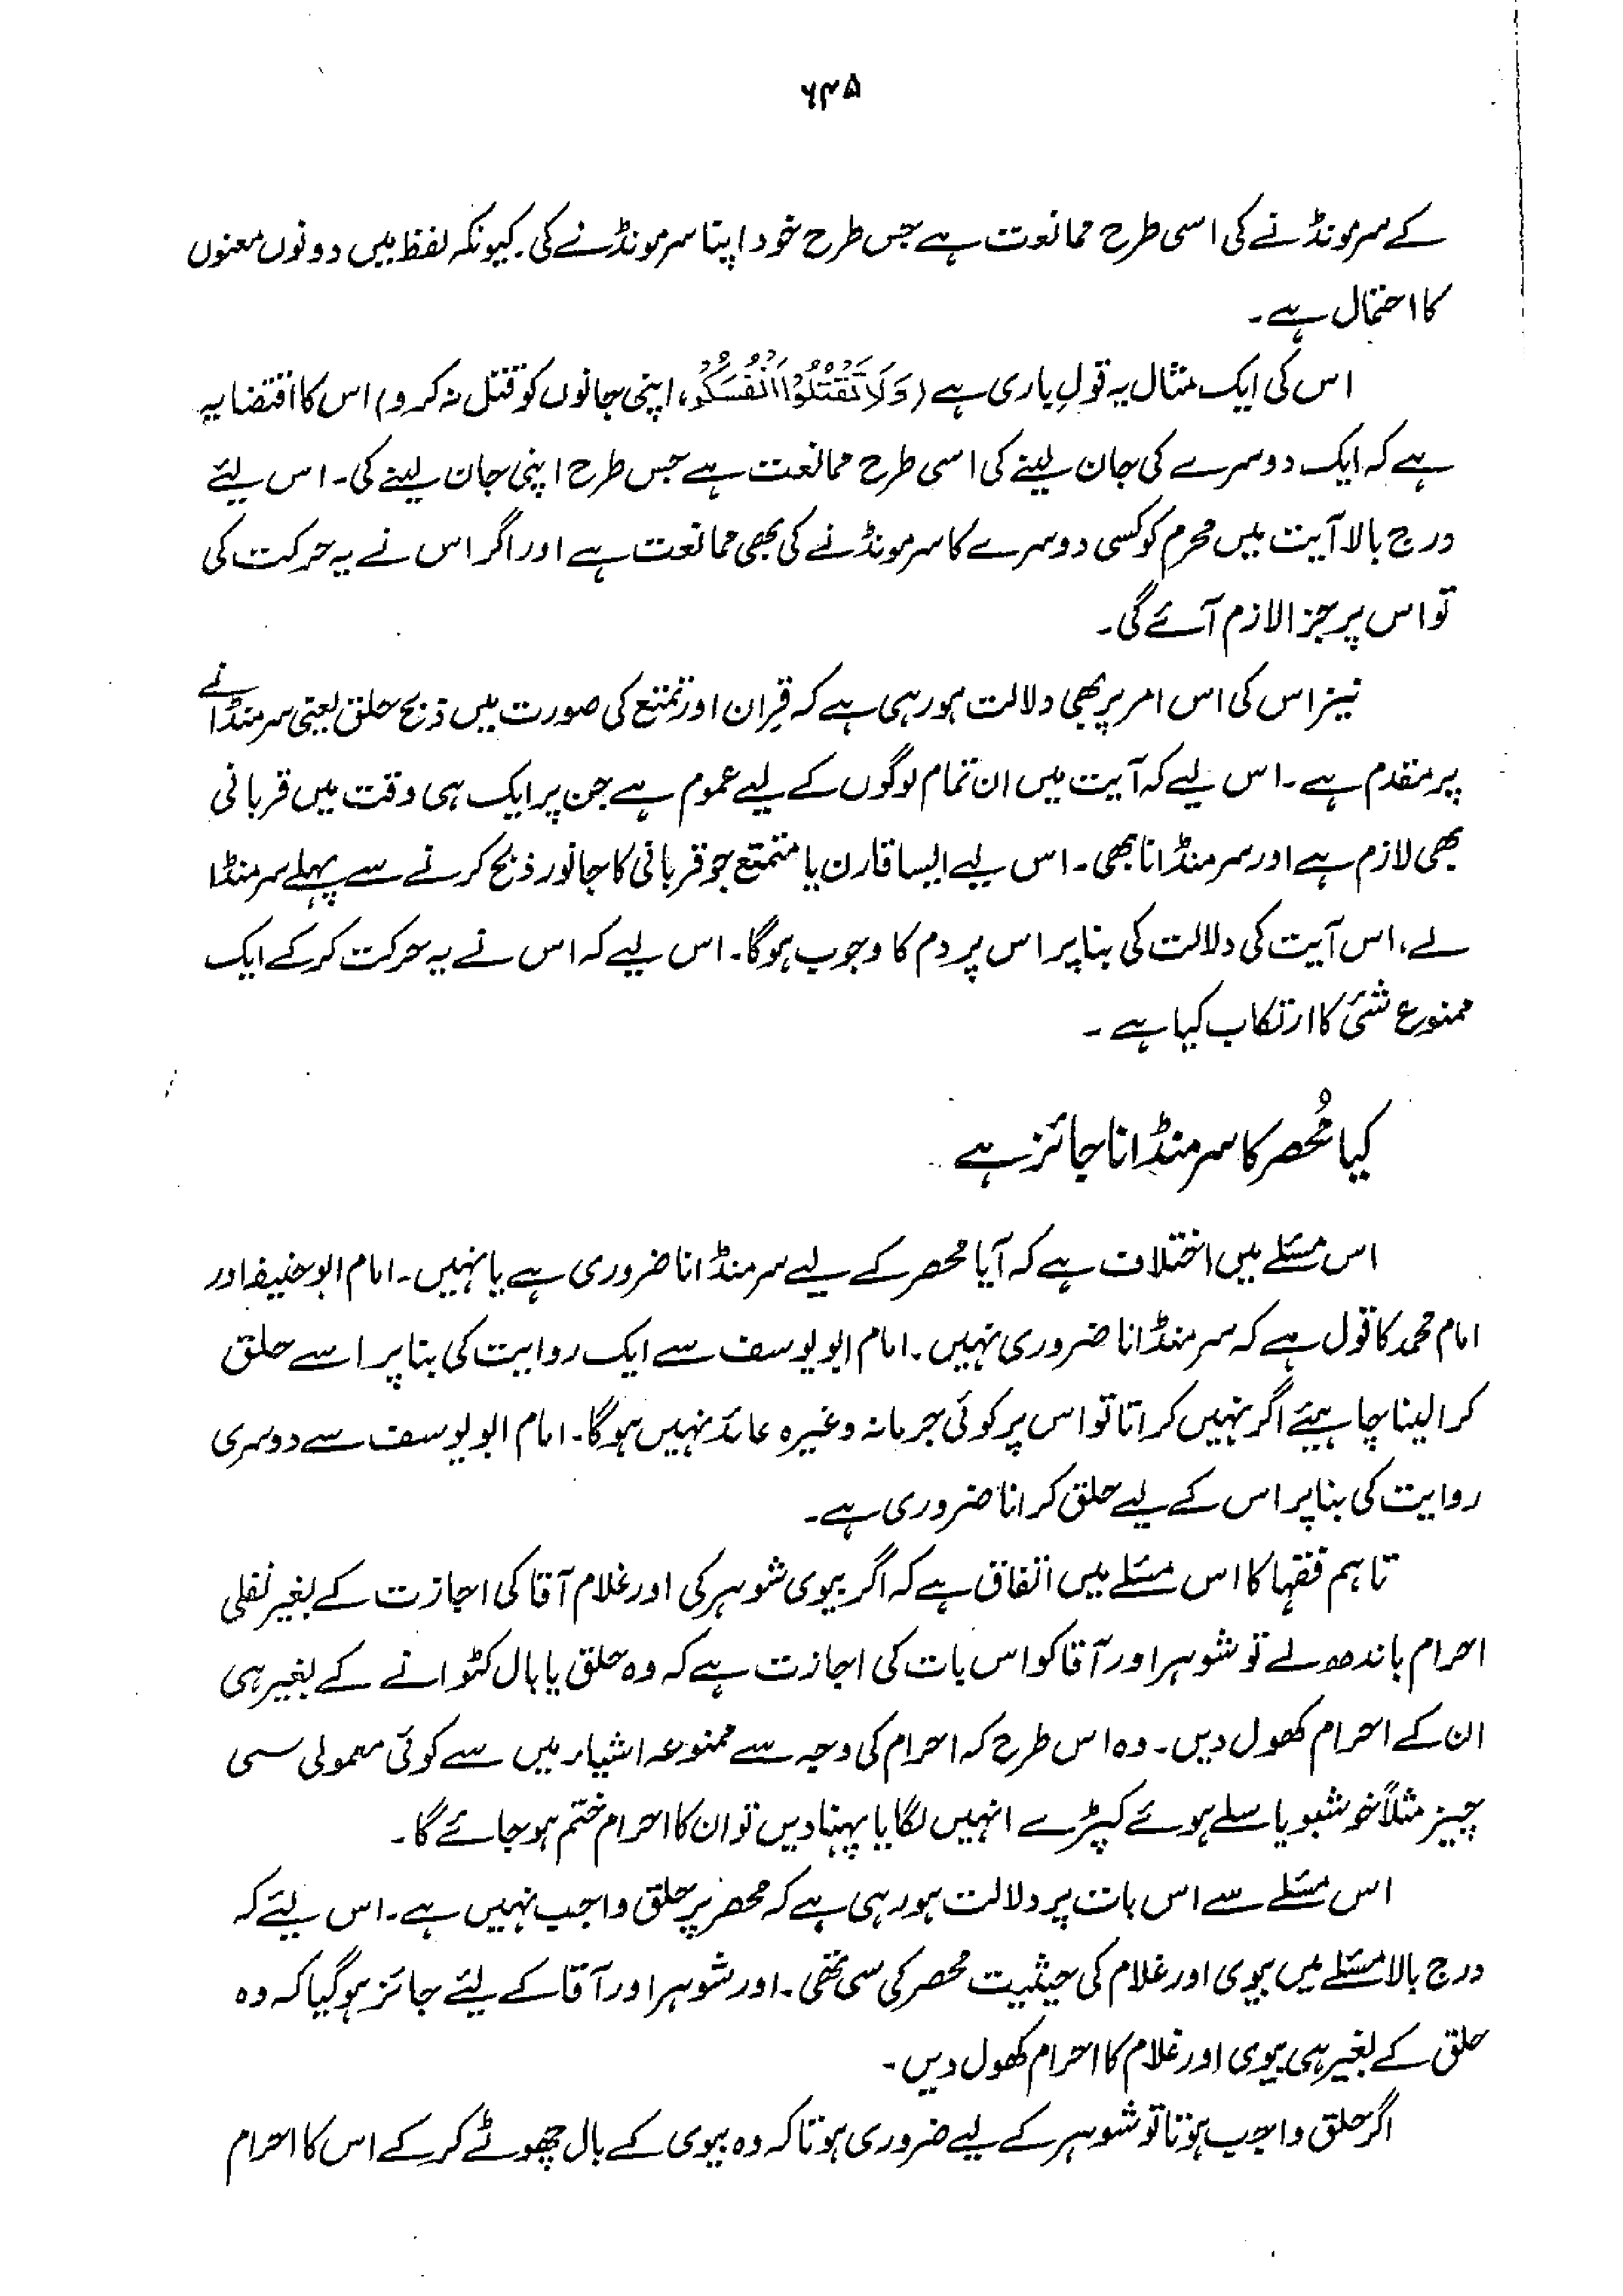 ۶۴۵
کے سر مونڈنے کی اسی طرح ممانعت ہے جس طرح خود اپنا سر مونڈنے کی۔ کیونکہ لفظ میں دونوں معنوں
کا احتمال ہے۔
اس کی ایک مثال یہ قولِ باری ہے (وَلَا تَقْتُلُوْا اَنْفُسَكُمْ، اپنی جانوں کو قتل نہ کرو) اس کا اقتضا یہ
ہے کہ ایک دوسرے کی جان لینے کی اسی طرح ممانعت ہے جس طرح اپنی جان لینے کی۔ اس لئے
درج بالا آیت میں محرم کو کسی دوسرے کا سر مونڈنے کی بھی ممانعت ہے اور اگر اس نے یہ حرکت کی
تو اس پر جزا لازم آئے گی۔
نیز اس کی اس امر پر بھی دلالت ہو رہی ہے کہ قِران اور تمتع کی صورت میں ذبح حلق یعنی سر منڈانے
پر مقدم ہے۔ اس لیے کہ آیت میں ان تمام لوگوں کے لیے عموم ہے جن پر ایک ہی وقت میں قربانی
بھی لازم ہے اور سر منڈانا بھی۔ اس لیے ایسا قارن یا متمتع جو قربانی کا جانور ذبح کرنے سے پہلے سر منڈا
لے، اس آیت کی دلالت کی بنا پر اس پر دم کا وجوب ہوگا۔ اس لیے کہ اس نے یہ حرکت کر کے ایک
ممنوع شئ کا ارتکاب کیا ہے۔
کیا مُحصر کا سر منڈانا جائز ہے
اس مسئلے میں اختلاف ہے کہ آیا محصر کے لیے سر منڈانا ضروری ہے یا نہیں۔ امام ابو حنیفہ اور
امام محمد کا قول ہے کہ سر منڈانا ضروری نہیں۔ امام ابو یوسف سے ایک روایت کی بنا پر اسے حلق
کرا لینا چاہیئے اگر نہیں کراتا تو اس پر کوئی جرمانہ وغیرہ عائد نہیں ہوگا۔ امام ابو یوسف سے دوسری
روایت کی بنا پر اس کے لیے حلق کرانا ضروری ہے۔
تاہم فقہا کا اس مسئلے میں اتفاق ہے کہ اگر بیوی شوہر کی اور غلام آقا کی اجازت کے بغیر نفلی
احرام باندھ لے تو شوہر اور آقا کو اس بات کی اجازت ہے کہ وہ حلق یا بال کٹوانے کے بغیر ہی
ان کے احرام کھول دیں۔ وہ اس طرح کہ احرام کی وجہ سے ممنوعہ اشیاء میں سے کوئی معمولی سی
چیز مثلاً خوشبو یا سلے ہوئے کپڑے انہیں لگا یا پہنا دیں تو ان کا احرام ختم ہو جائے گا۔
اس مسئلے سے اس بات پر دلالت ہو رہی ہے کہ محصر پر حلق واجب نہیں ہے۔ اس لئے کہ
درج بالا مسئلے میں بیوی اور غلام کی حیثیت محصر کی سی تھی۔ اور شوہر اور آقا کے لئے جائز ہو گیا کہ وہ
حلق کے بغیر ہی بیوی اور غلام کا احرام کھول دیں۔
اگر حلق واجب ہوتا تو شوہر کے لیے ضروری ہوتا کہ وہ بیوی کے بال چھوٹے کر کے اس کا احرام